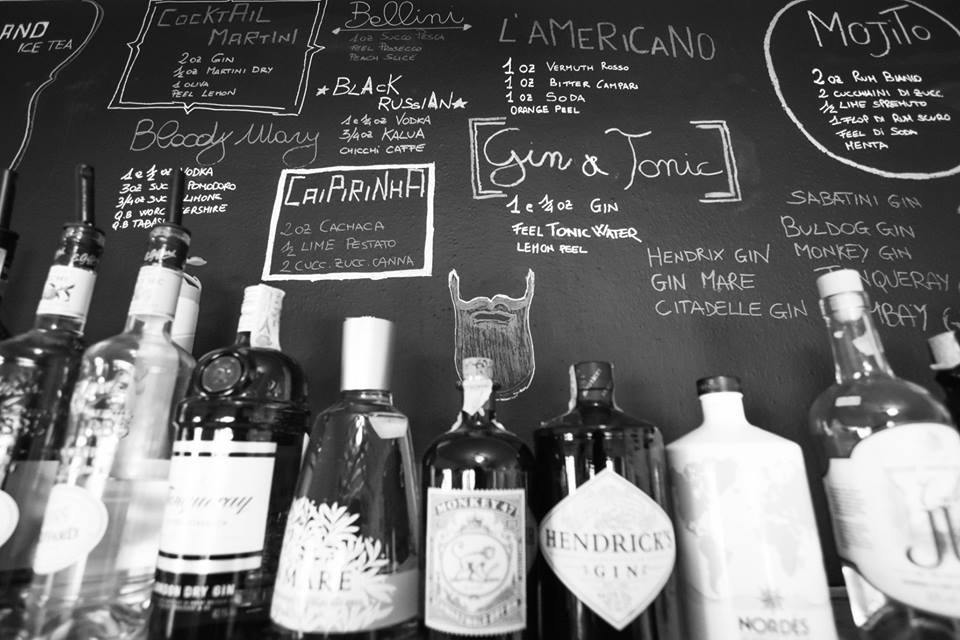 AND
ICE TEA
COCKTAIL
MARTINI
2 OZ GIN
½ OZ MARTINI DRY
1 OLIVA
PEEL LEMON
Bellini
1 OZ SUCCO PESCA
FEEL PROSECCO
PEACH SLICE
BLACK
RUSSIAN
1 e ½ OZ VODKA
3/4 OZ KALUA
CHICCHI CAFFE
L'AMERICANO
1 OZ VERMUTH ROSSO
1 OZ BITTER CAMPARI
1 OZ SODA
ORANGE PEEL
MOJITO
2 OZ RUM BIANCO
2 CUCCHAINI DI ZUCC.
½ LIME SPREMUTO
1 FLOP DI RUM SCURO
FEEL DI SODA
MENTA
Bloody Mary
1 e ½ OZ VODKA
3 OZ SUCC POMODORO
3/4 OZ SUCC LIMONE
Q.B WORC ERSHIRE
Q.B TABAS
CAIPIRINHA
2 OZ CACHACA
½ LIME PESTATO
2 CUCC. ZUCC. CANNA
Gin & Tonic
1 e ¼ OZ GIN
FEEL TONIC WATER
LEMON PEEL
SABATINI GIN
BULDOG GIN
MONKEY GIN
NQUERAY
MBAY
HENDRIX GIN
GIN MARE
CITADELLE GIN
queray
DON DRY GIN
MARE
MONKEY 47
HENDRICK'S
GIN
NORDÉS
JU